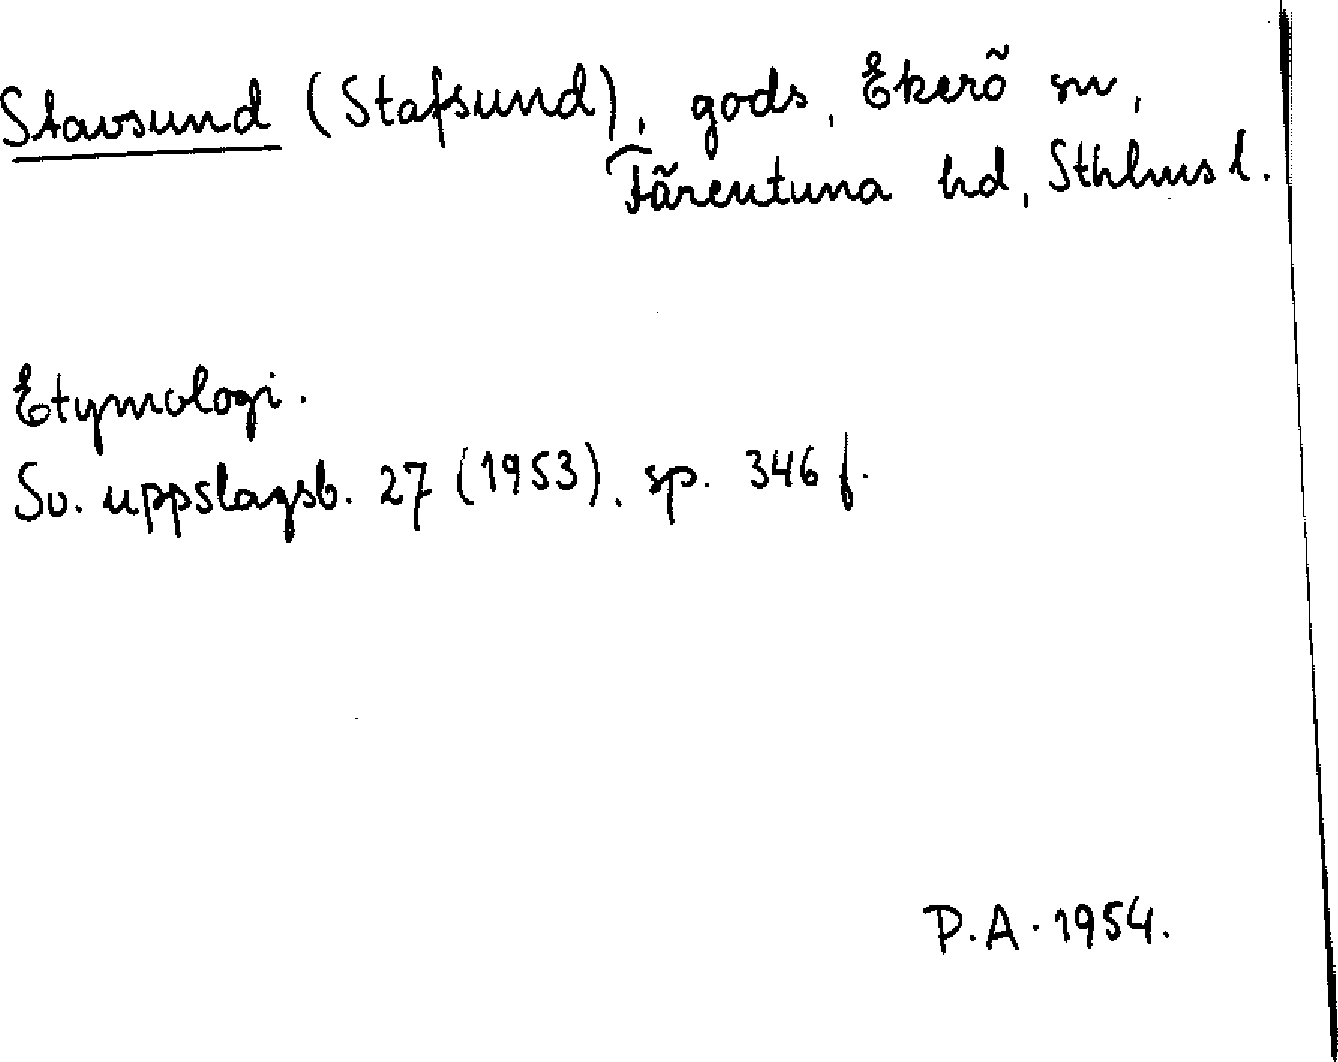 Stavsund (Stafsund), gods, Ekerö sn,
Färentuna hd, Sthlms l.
Etymologi.
Sv. uppslagsb. 27 (1953), sp. 346 f.
P.A. 1954.